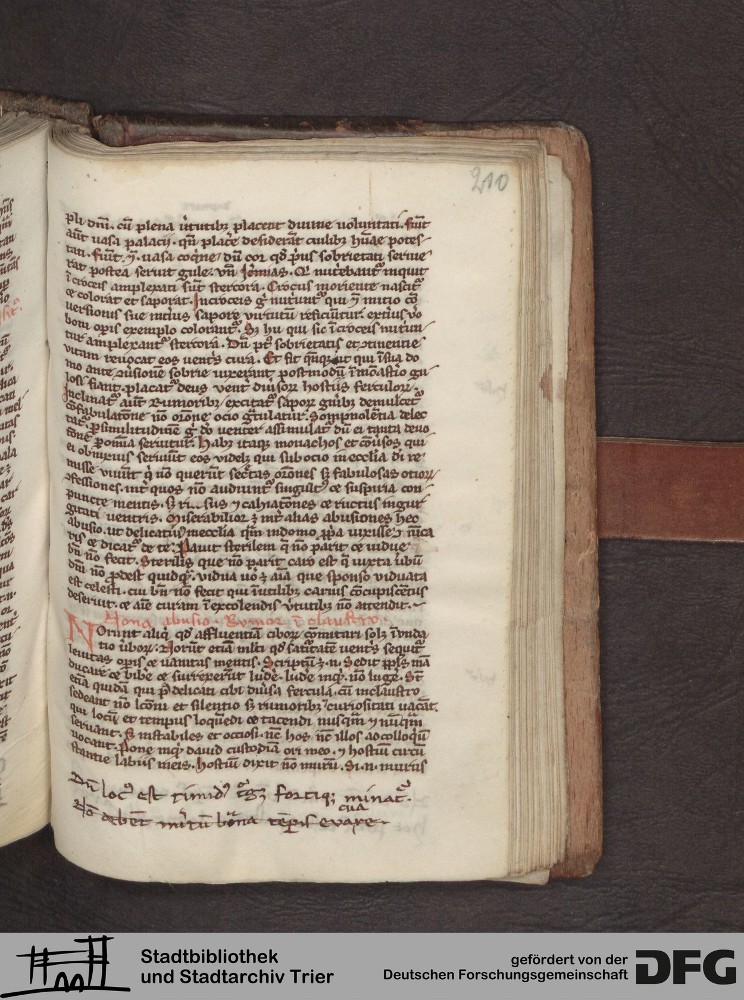 210
pli dni. cu plena uirtutibus placent diuine uoluntati. Fiunt
aut uasa palacii. qn place desiderat cuilibet hmane potes
tati. Fiunt uasa coqine dum cor qd prius sobrietati seruie
rat postea seruit gule. vn Ieremias. Qui nutriebant inquit
in croceis amplexati sut stercora. Crocus moriente nascit
ce colorat et saporat. In croceis g nutriunt qui in initio co
uersionis sue intius sapore virtutu reficiuntur. exterius uo
boni opis exemplo colorant. Sz hii qui sic in croceis nutriun
tur amplexant stercora. Dum post sobrietatis et continentie
vitam reuocat eos ventris cura. Et fit qui in sua do
mo ante conuersione sobrie uixerant postmodum in monastio gu
losi fiant. placat deus ventris diuisor hostiis ferculor.
Inclinat aut Rumoribus excitat sapor quibus demulcet
confabulatone no orone ocio gratulatur. Sompnolentia delec
tat. Per similitudine g do venter assimilat dum ei tanta deuo
tone seruitur. Habet itaque monachos et conuersos qui
ei obnixius seruiunt eos videlicet qui sub ocio in ecclia di re
misse viuunt qui no querunt secretas orones sz fabulosas otior
confessiones. inter quos no audiunt singultus ce suspiria con
puncte mentis. sz risus cahiatones ce ructus ingur
gitati ventris. Miserabilior inter alias abusiones hec
abusio. ut delicatius in ecclia qm in domo ppria vixisse
tis ce dicat de te. Pauit sterilem que no parit ce vidue
bn no fecit. Sterilis que no parit caro est que iuxta ubum
dni no prodest quidq. vidua uo aia que sponso viduata
est celesti. cui bn no fecit qui inutilibus carnis concupiscentiis
deseruit. ce aie curam in excolendis virtutibus no attendit.
Nona abusio. Rumor in claustro.
Norunt aliqui qd affluentiam cibor comitari solet inunda
tio uborum. Norunt etiam multi qd saturitate ventris sequitur
leuitas opis ce uanitas mentis. Scriptum n. Sedit ppls man
ducare ce bibe ce surrexerunt lude. lude inquit no luge. St
etia quidam qui post delicati cibi diuersa fercula. cum in claustro
sedeant no lconi et silentio sz rumoribus curiositati uacant.
qui locum et tempus loquedi ce tacendi nusquam numquam
seruant. sz instabiles et ociosi. nc hos nc illos ad colloquiu
uocant. Pone inquit dauid custodiam ori meo. hostium circu
stantie labiis meis. Hostium dixit no muru. Si. n. murus
Dum locus est timidus fortisque minatur.
No debent mirum bona tempis euare
cua
Stadtbibliothek
und Stadtarchiv Trier
gefördert von der
Deutschen Forschungsgemeinschaft
DFG